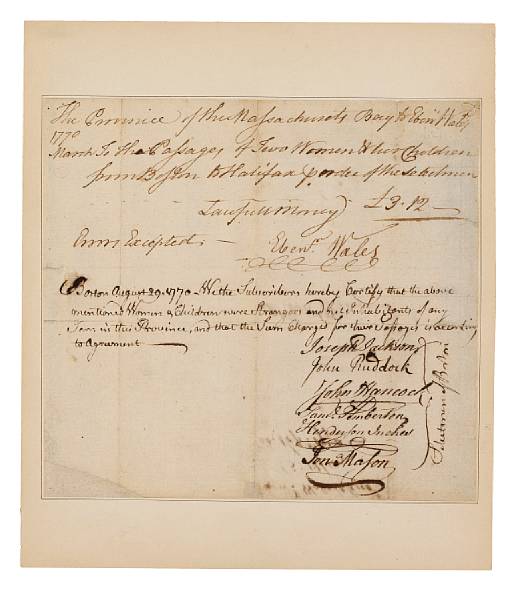 The Province of the Massachusetts Bay to Eben.r Wales
1770
March To the Passages of Two Women & two Children
from Boston to Halifax p order of the Selectmen
Lawfull Money £3.12
Errors Excepted
Eben.r Wales
Boston August 29. 1770. We the Subscribers hereby Certify that the above
mentioned Women & Children were Strangers and not Inhabitants of any
Town in this Province, and that the Sum Charged for their Passages is according
to Agreement
Joseph Jackson
John Ruddock
John Hancock
Sam.l Pemberton
Henderson Inches
Jon.a Mason
Selectmen of Boston